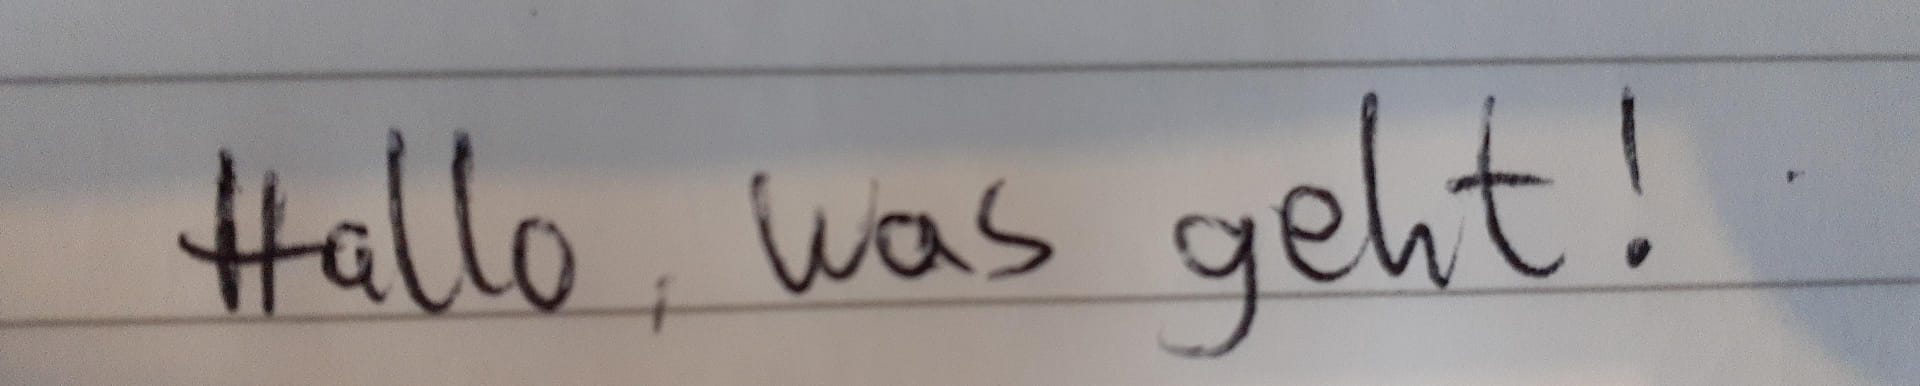 Hallo, was geht!